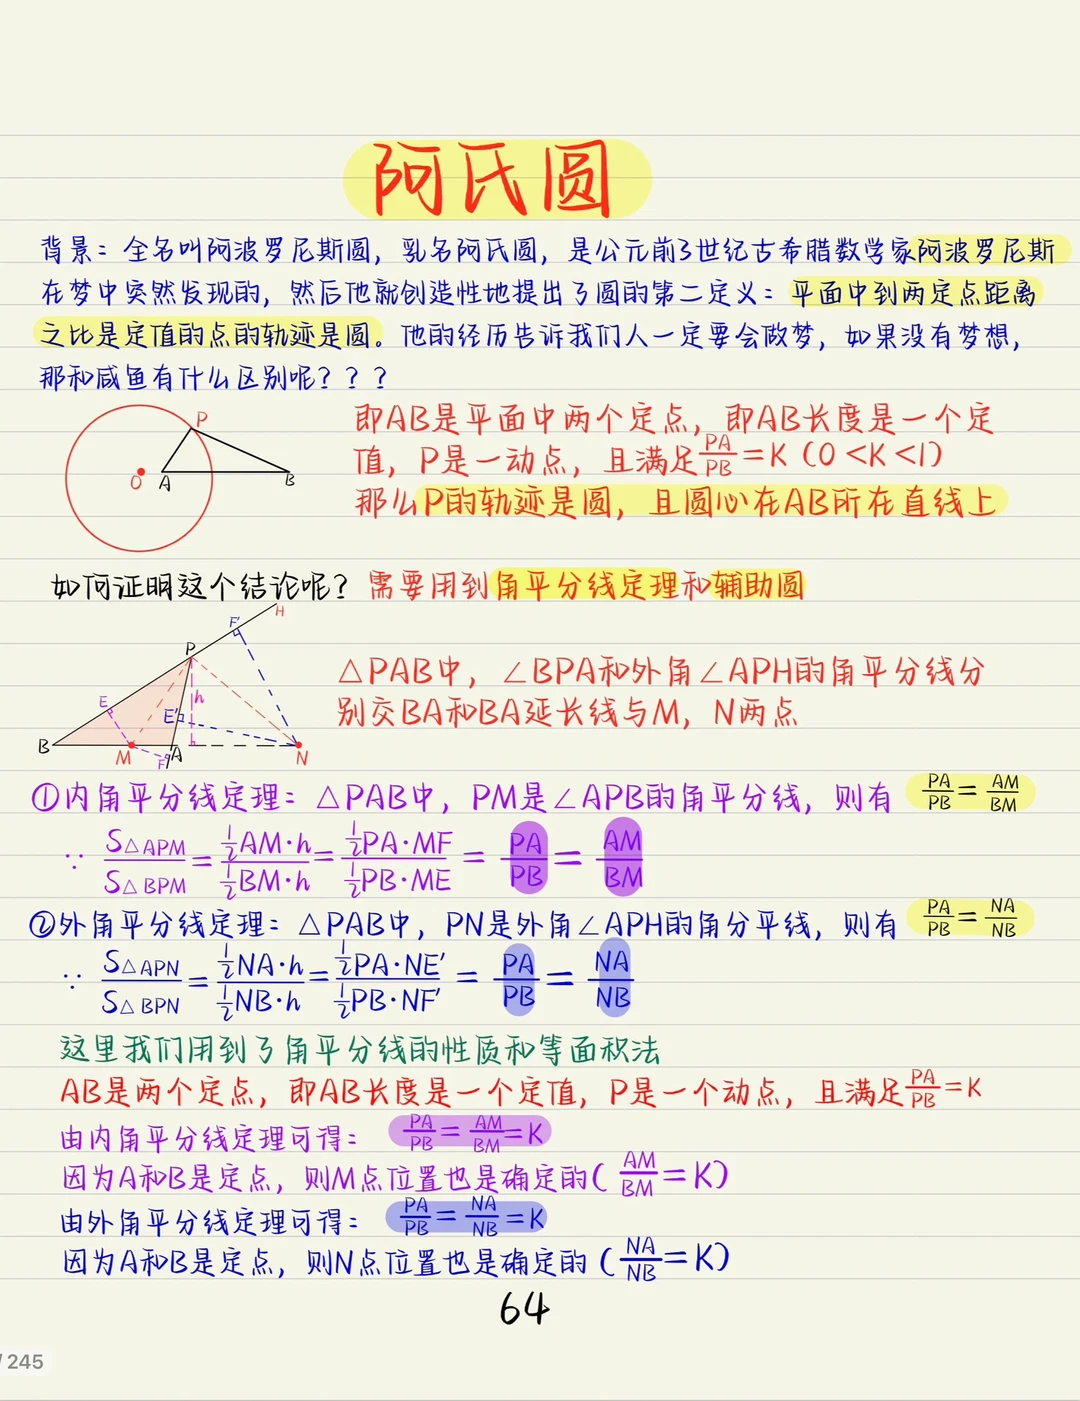 阿氏圆
背景：全名叫阿波罗尼斯圆，乳名阿氏圆，是公元前3世纪古希腊数学家阿波罗尼斯
在梦中突然发现的，然后他就创造性地提出了圆的第二定义：平面中到两定点距离
之比是定值的点的轨迹是圆。他的经历告诉我们人一定要会做梦，如果没有梦想，
那和咸鱼有什么区别呢？？？
P
O A B
即AB是平面中两个定点，即AB长度是一个定
值，P是一动点，且满足PA/PB=K（0<K<1）
那么P的轨迹是圆，且圆心在AB所在直线上
如何证明这个结论呢？需要用到角平分线定理和辅助圆
H
F'
P
E h
E'
B M A N
F
△PAB中，∠BPA和外角∠APH的角平分线分
别交BA和BA延长线与M，N两点
①内角平分线定理：△PAB中，PM是∠APB的角平分线，则有 PA/PB=AM/BM
∵ S△APM/S△BPM=(1/2AM·h)/(1/2BM·h)=(1/2PA·MF)/(1/2PB·ME)=PA/PB=AM/BM
②外角平分线定理：△PAB中，PN是外角∠APH的角分平线，则有 PA/PB=NA/NB
∵ S△APN/S△BPN=(1/2NA·h)/(1/2NB·h)=(1/2PA·NE')/(1/2PB·NF')=PA/PB=NA/NB
这里我们用到了角平分线的性质和等面积法
AB是两个定点，即AB长度是一个定值，P是一个动点，且满足PA/PB=K
由内角平分线定理可得：PA/PB=AM/BM=K
因为A和B是定点，则M点位置也是确定的（AM/BM=K）
由外角平分线定理可得：PA/PB=NA/NB=K
因为A和B是定点，则N点位置也是确定的（NA/NB=K）
64
/ 245